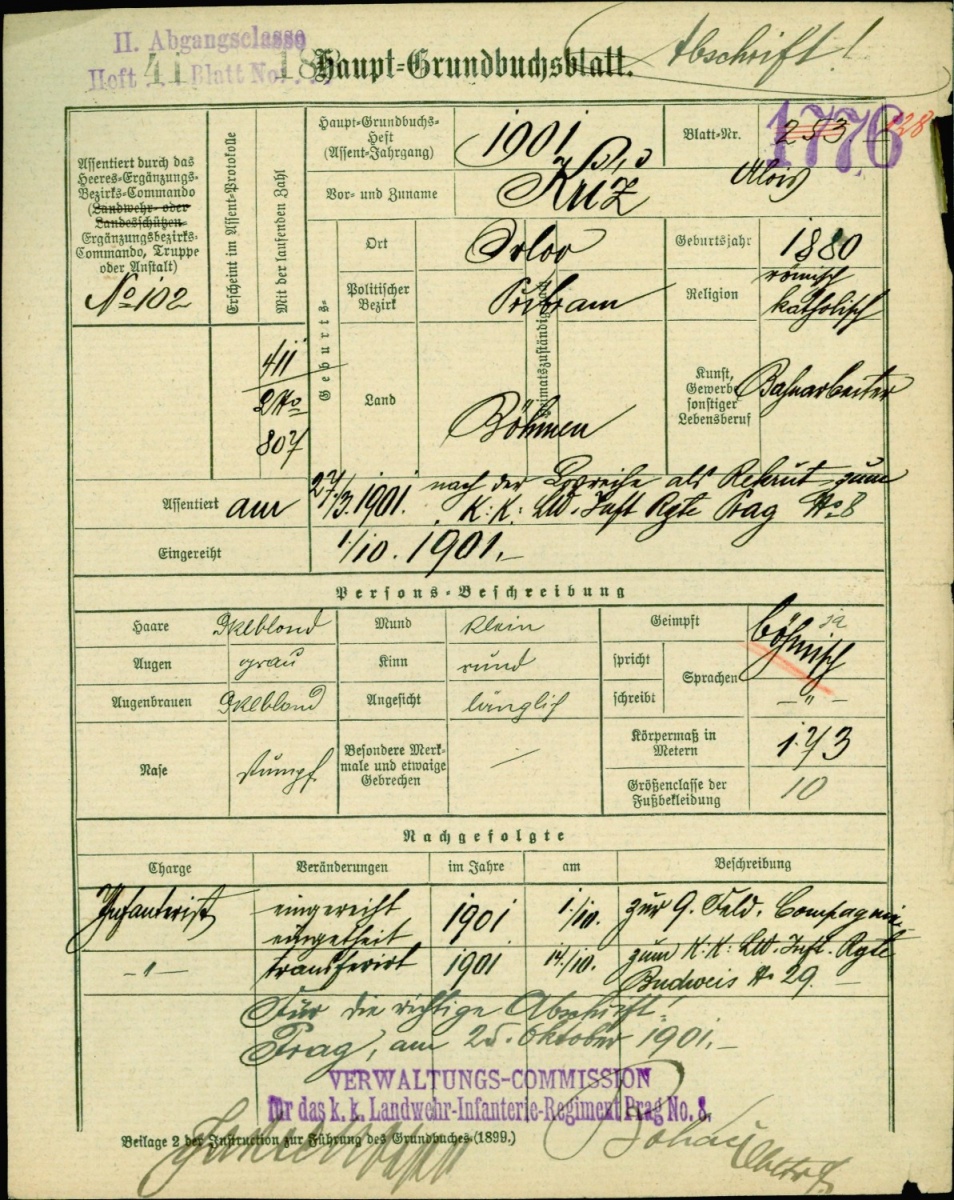 II. Abgangsclasse
Heft 41 Blatt No. 18
Haupt-Grundbuchsblatt.
Abschrift!
Assentiert durch das
Heeres-Ergänzungs-
Bezirks-Commando
(Landwehr- oder
Landesschützen-
Ergänzungsbezirks-
Commando, Truppe
oder Anstalt)
No 102
Erscheint im Assent-Protokolle
Mit der laufenden Zahl
411
2
807
Haupt-Grundbuchs-
Heft
(Assent-Jahrgang)
1901
Blatt-Nr.
253
1776
128
Vor- und Zuname
Kříž
Alois
Geburts-
Ort
Orlov
Geburtsjahr
1880
Politischer
Bezirk
Přibram
Religion
römisch
katholisch
Land
Böhmen
Heimatszuständigkeit
Kunst,
Gewerbe
sonstiger
Lebensberuf
Bahnarbeiter
Assentiert
am
27/3. 1901.
nach der Losreihe als Rekrut zum
K: K: LW. Inft Rgte Prag No 8
Eingereiht
1/10. 1901.-
Persons-Beschreibung
Haare
Dklblond
Mund
klein
Geimpft
ja
Augen
grau
Kinn
rund
spricht
Sprachen
böhmisch
Augenbrauen
Dklblond
Angesicht
länglich
schreibt
- " -
Nase
stumpf
Besondere Merk-
male und etwaige
Gebrechen
—
Körpermaß in
Metern
1.73
Größenclasse der
Fußbekleidung
10
Nachgefolgte
Charge
Veränderungen
im Jahre
am
Beschreibung
Infanterist
eingereiht
eingetheilt
1901
1/10.
zur 9. Feld. Compagnie.
-"-
transferirt
1901
14/10.
zum K: K: LW. Inft. Rgte
Budweis No 29. —
Für die richtige Abschrift!
Prag, am 25. Oktober 1901.-
VERWALTUNGS-COMMISSION
für das k. k. Landwehr-Infanterie-Regiment Prag No. 8.
Beilage 2 der Instruction zur Führung des Grundbuches (1899.)